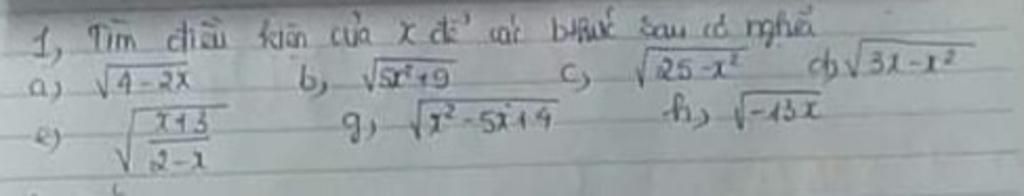 1, Tìm điều kiện của x để các bthức sau có nghĩa
a) √(4-2x) b, √(5x²+9) c, √(25-x²) d) √(3x-x²)
e) √((x+3)/(2-x)) g, √(x²-5x+4) h, √(-13x)